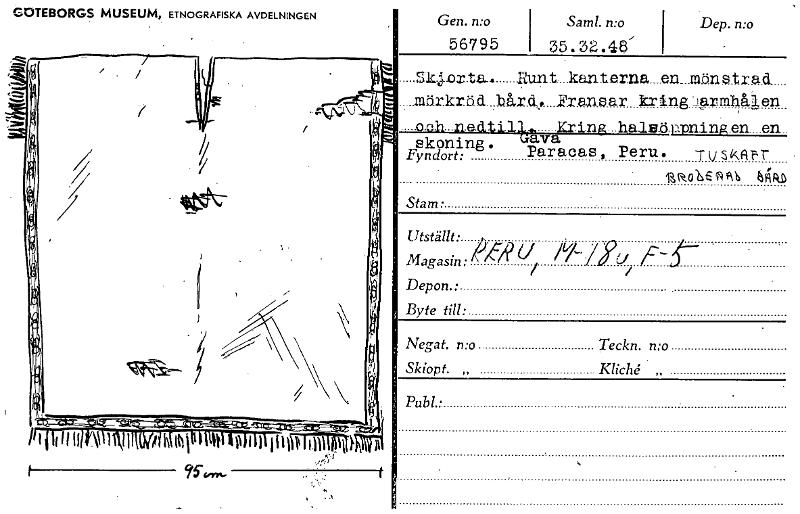 GÖTEBORGS MUSEUM, ETNOGRAFISKA AVDELNINGEN
Gen. n:o
56795
Saml. n:o
35.32.48
Dep. n:o
Skjorta. Runt kanterna en mönstrad
mörkröd bård. Fransar kring armhålen
och nedtill. Kring halsöppningen en
skoning. Gåva
Fyndort: Paracas, Peru. TUSKAFT
BRODERAD BÅRD
Stam:
Utställt:
Magasin: PERU, M-18u, F-5
Depon.:
Byte till:
Negat. n:o Teckn. n:o
Skiopt. „ Kliché „
Publ.:
95 cm